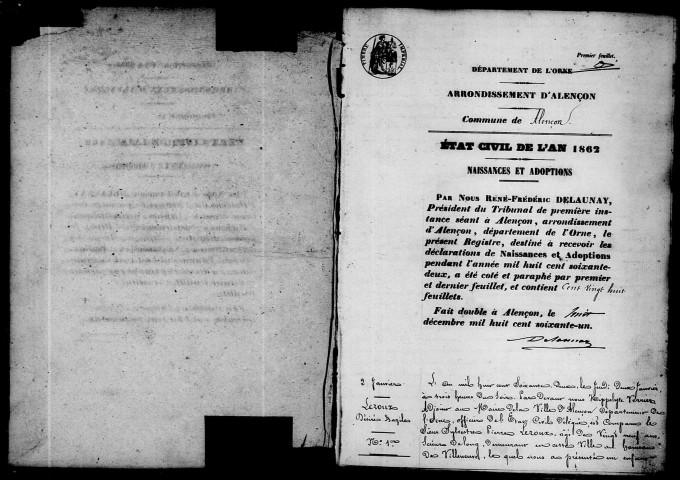 Premier feuillet.
DÉPARTEMENT DE L'ORNE
ARRONDISSEMENT D'ALENÇON
Commune de Alençon
ÉTAT CIVIL DE L'AN 1862
NAISSANCES ET ADOPTIONS
PAR NOUS RENÉ-FRÉDÉRIC DELAUNAY,
Président du Tribunal de première ins-
tance séant à Alençon, arrondissement
d'Alençon, département de l'Orne, le
présent Registre, destiné à recevoir les
déclarations de Naissances et Adoptions
pendant l'année mil huit cent soixante-
deux, a été coté et paraphé par premier
et dernier feuillet, et contient Cent vingt huit
feuillets.
Fait double à Alençon, le
décembre mil huit cent soixante-un.
Delaunay
2 Janvier
Leroux
Désirée
N° 1er
L'an mil huit cent soixante deux, le Jeudi deux Janvier,
à trois heures du soir, Pardevant nous Hippolyte
Adjoint au Maire de la Ville d'Alençon Département de
l'Orne, officier de l'Etat Civil délégué est comparu le
Sieur Sylvestre Pierre Leroux, âgé de vingt neuf ans,
demeurant en cette Ville
de Villeneuve, lequel nous a présenté un enfant